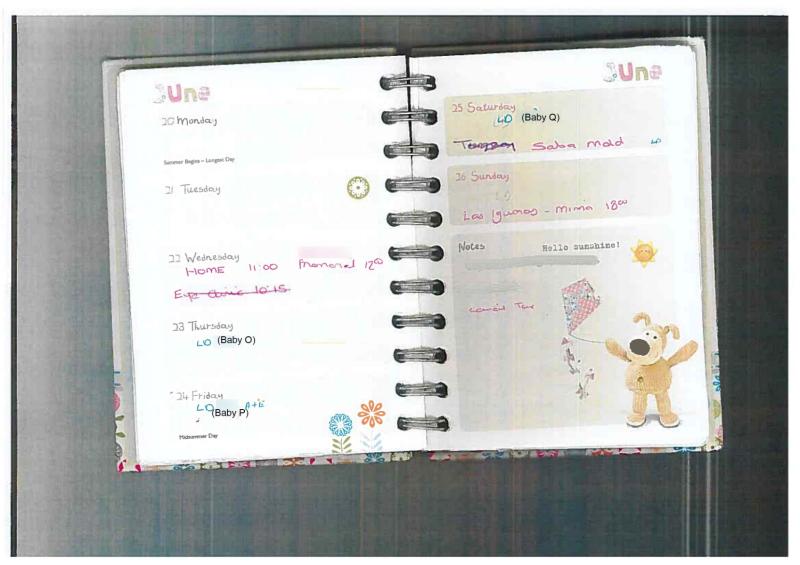 June
20 Monday
Summer Begins – Longest Day
21 Tuesday
22 Wednesday
HOME 11:00 12:00
Eye Clinic 10:15
23 Thursday
LD (Baby O)
24 Friday
LD A+E
(Baby P)
Midsummer Day
June
25 Saturday
LD (Baby Q)
Salsa Mold LD
26 Sunday
LD
Las Iguanas - Mima 18:00
Notes Hello sunshine!
Council Tax